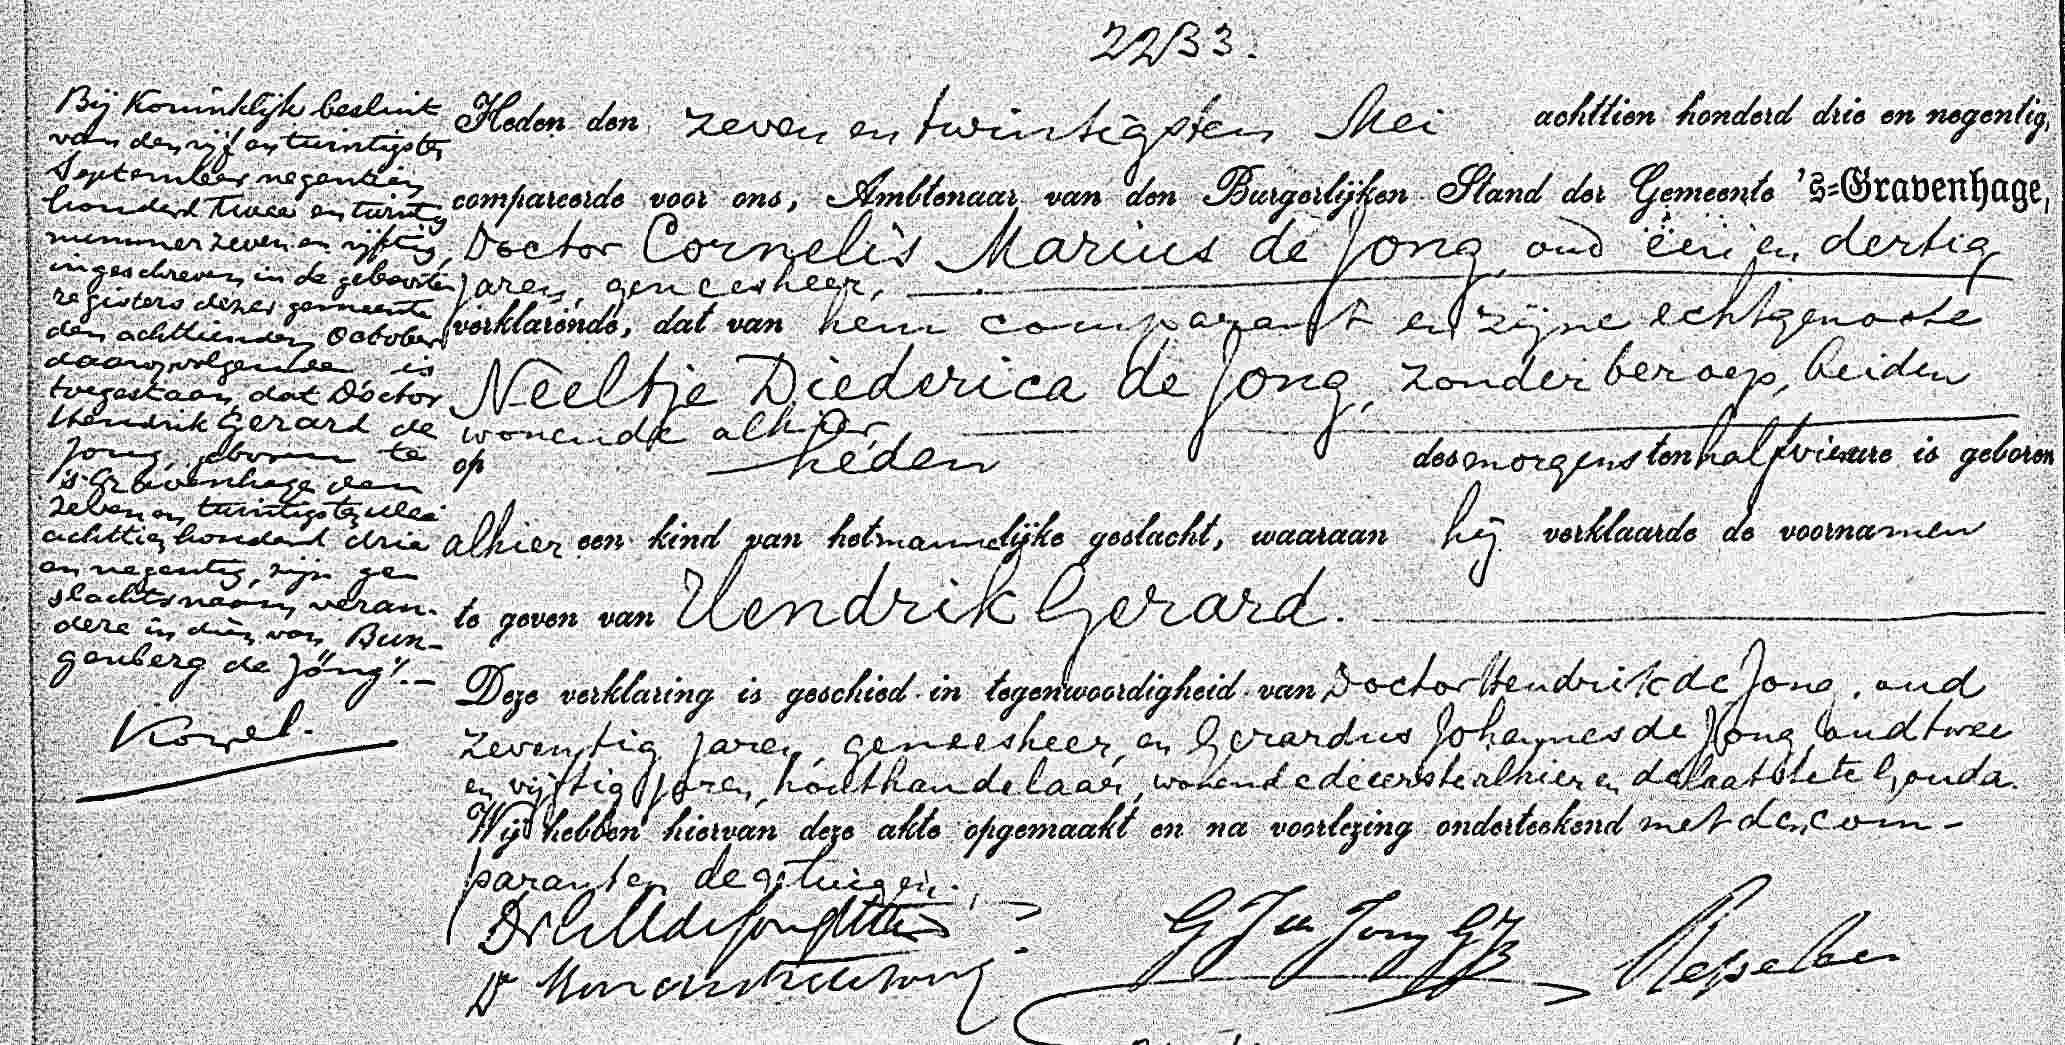 2233.
Bij Koninklijk besluit
van den vijf en twintigsten
September negentien
honderd twee en twintig
nummer zeven en vijftig,
ingeschreven in de geboorte
registers dezer gemeente
den achttienden October
daaropvolgende is
toegestaan, dat Doctor
Hendrik Gerard de
Jong, geboren te
's Gravenhage den
zeven en twintigsten Mei
achttienhonderd drie
en negentig, zijn ge
slachtsnaam veran-
dere in dien van "Bun-
genberg de Jong".-
Heden den zeven en twintigsten Mei achttien honderd drie en negentig,
compareerde voor ons, Ambtenaar van den Burgerlijken Stand der Gemeente 's=Gravenhage,
Doctor Cornelis Marius de Jong, oud een en dertig
jaren, geneesheer,
verklarende, dat van hem comparant en zijne echtgenoote
Neeltje Diederica de Jong, zonder beroep, beiden
wonende alhier
op heden des morgens ten half vier ure is geboren
alhier een kind van het mannelijke geslacht, waaraan hij verklaarde de voornamen
te geven van Hendrik Gerard.
Deze verklaring is geschied in tegenwoordigheid van Doctor Hendrik de Jong, oud
zeventig jaren, geneesheer, en Gerardus Johannes de Jong, oud twee
en vijftig jaren, houthandelaar, wonende de eerste alhier en de laatste te Gouda.
Wij hebben hiervan deze akte opgemaakt en na voorlezing onderteekend met den com-
parant en de getuigen.